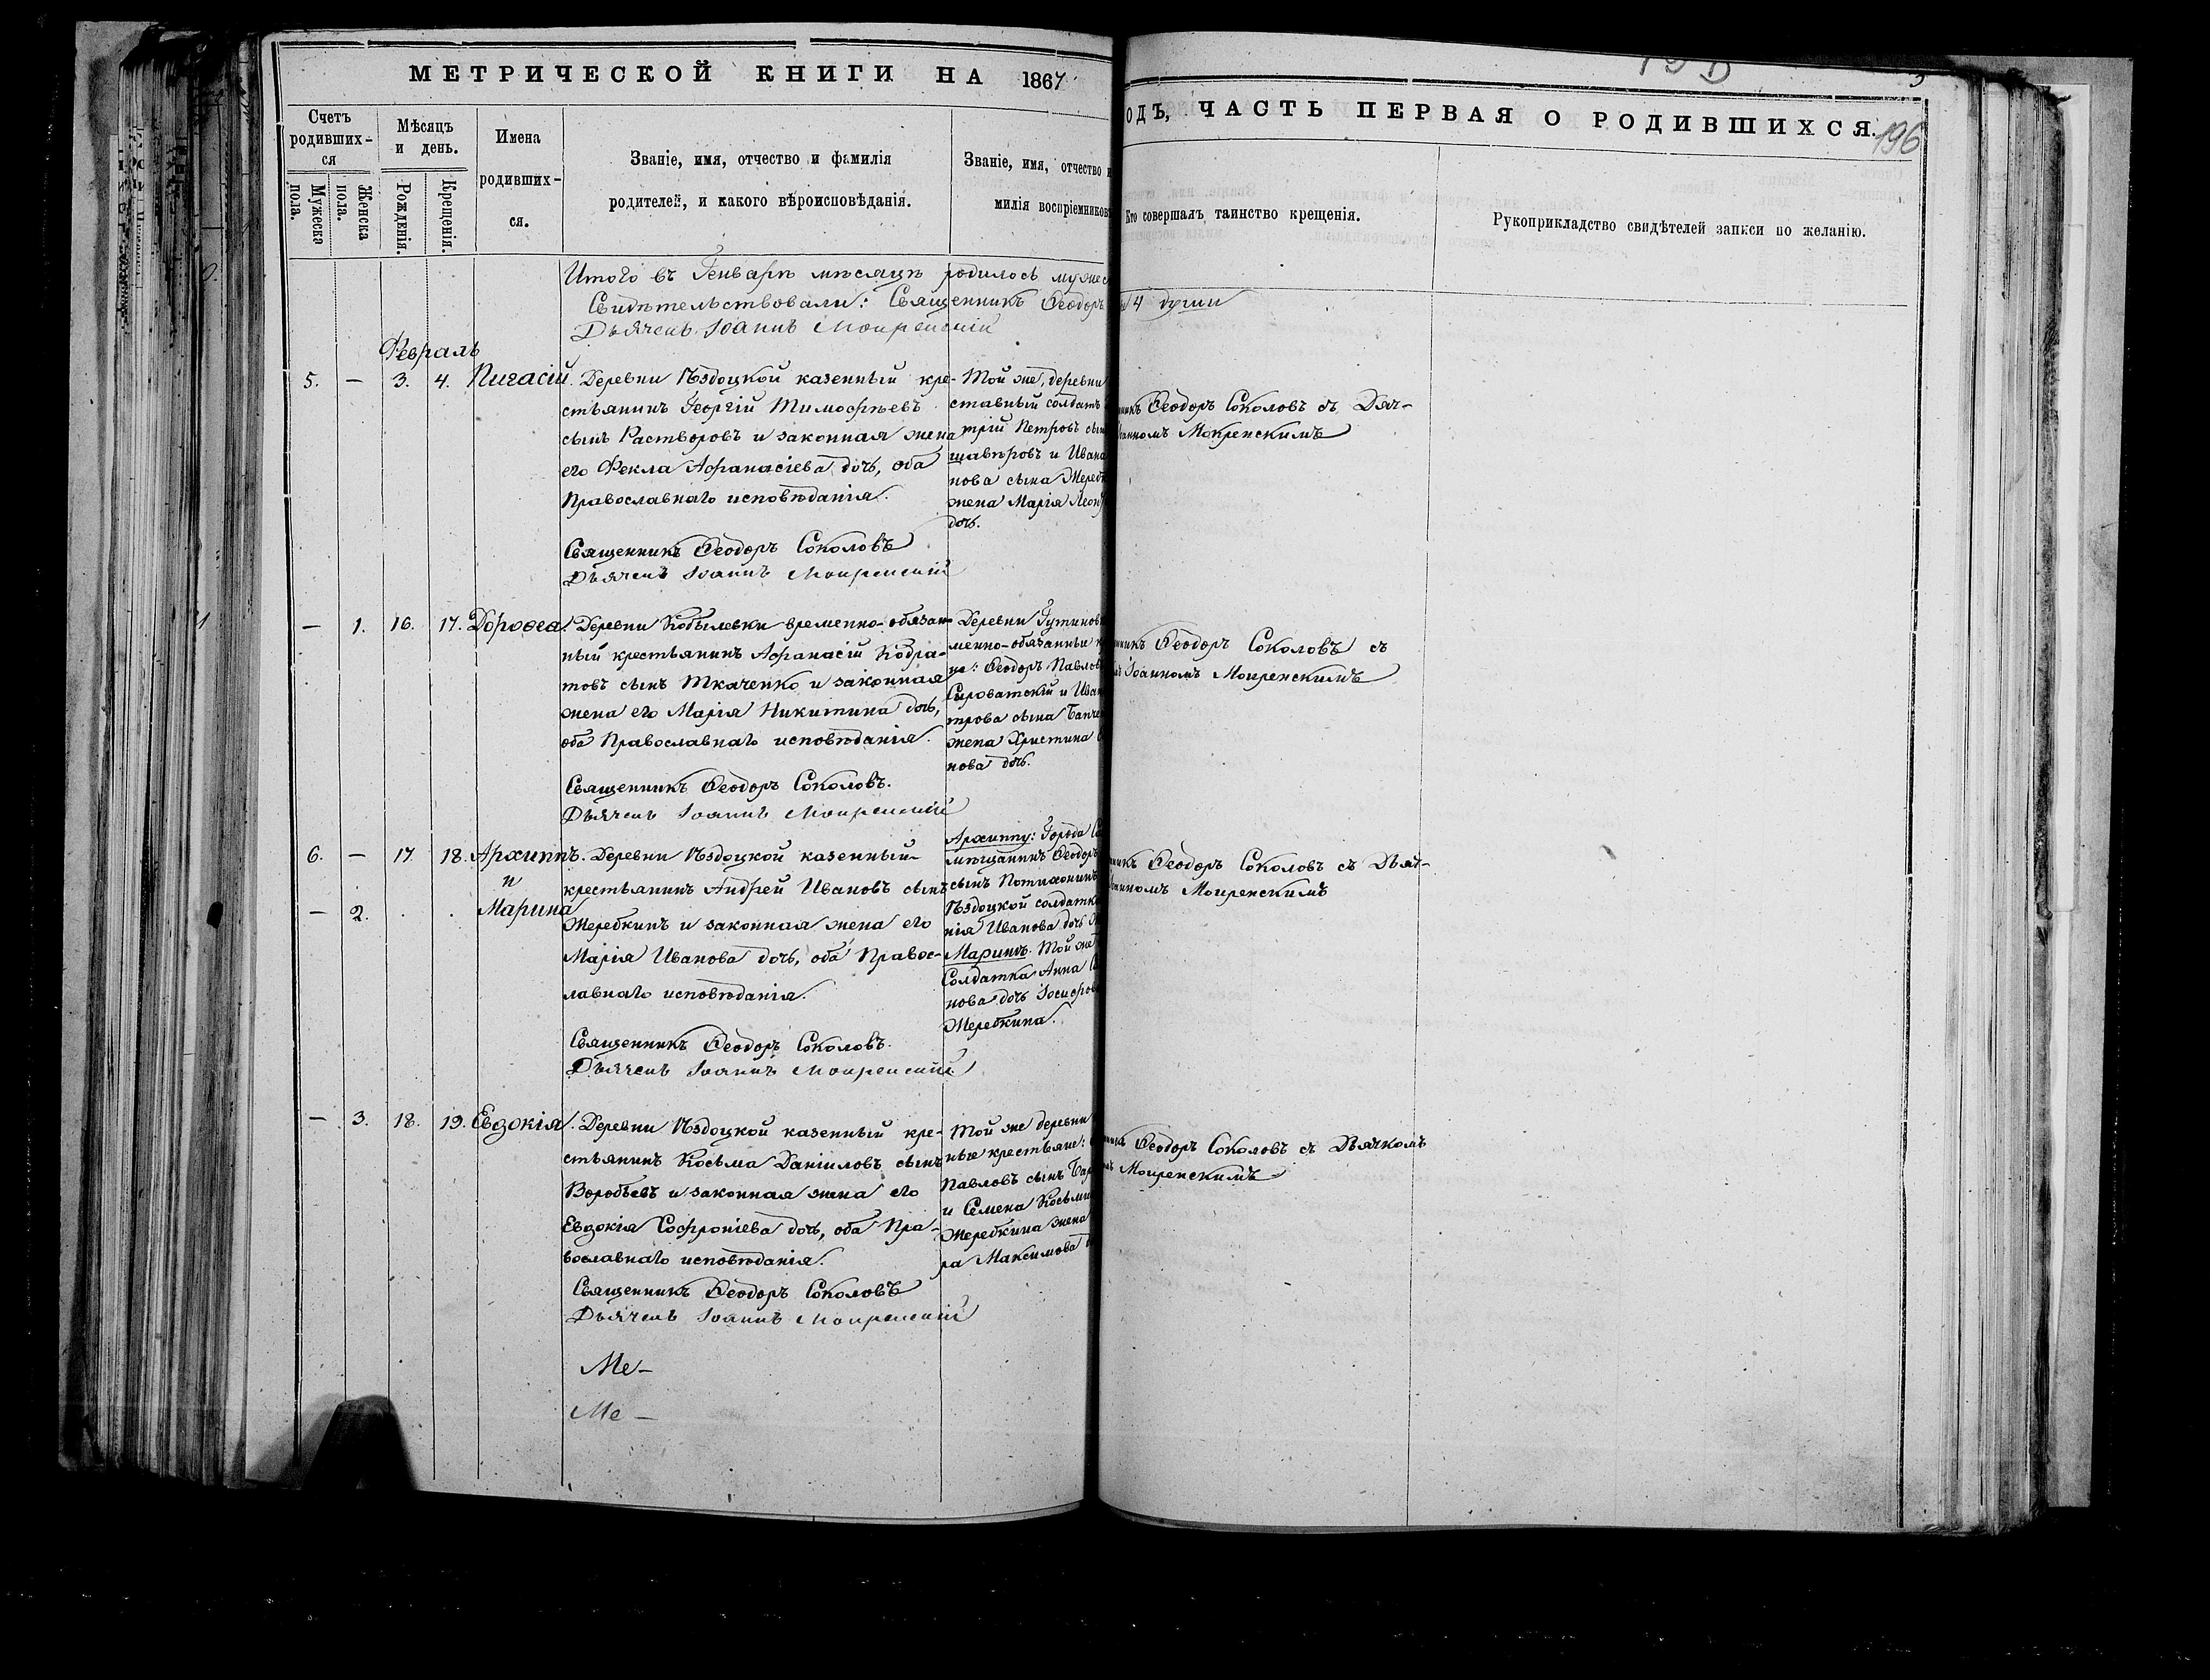 МЕТРИЧЕСКОЙ КНИГИ НА 1867
ОДЪ, ЧАСТЬ ПЕРВАЯ О РОДИВШИХСЯ.
196
Счетъ родивших-ся
Мужеска пола.
Женска пола.
Мѣсяцъ и день.
Рожденія.
Крещенія.
Имена родивших-ся.
Званіе, имя, отчество и фамилія
родителей, и какого вѣроисповѣданія.
Званіе, имя, отчество и
милія воспріемниковъ
Кто совершалъ таинство крещенія.
Рукоприкладство свидѣтелей записи по желанію.
Итого въ Генварѣ мѣсяцѣ родилось мужес
4 души
Свидѣтельствовали: Священникъ Ѳеодоръ
Дьячекъ Іоаннъ Мокренскій
Февраль
5. — 3. 4. Пигасій.
Деревни Ѣздоцкой казенный кре-
стьянинъ Георгій Тимофѣевъ
сынъ Растворовъ и законная жена
его Фекла Афанасіева дочь, оба
Православнаго исповѣданія.
Священникъ Ѳеодоръ Соколовъ
Дьячекъ Іоаннъ Мокренскій
Той же, деревни
ставный солдатъ
трій Петровъ сын
шавѣровъ и Ивана
нова сына Жеребк
жена Марія Леон
дочь.
никъ Ѳеодоръ Соколовъ съ Дяч-
анномъ Мокренскимъ
— 1. 16. 17. Дороѳеа.
Деревни Кобылевки временно-обязан-
ный крестьянинъ Афанасій Кодра-
товъ сынъ Ткаченко и законная
жена его Марія Никитина дочь,
оба Православнаго исповѣданія.
Священникъ Ѳеодоръ Соколовъ.
Дьячекъ Іоаннъ Мокренскій
Деревни Гутинов
менно-обязанные к
не: Ѳеодоръ Павлов
Сыроватскій и Иван
трова сына Банче
жена Христина
нова дочь.
никъ Ѳеодоръ Соколовъ съ
Іоанномъ Мокренскимъ
6. — 17 18. Архиппъ.
и
— 2. . . Марина
Деревни Ѣздоцкой казенный
крестьянинъ Андрей Ивановъ сынъ
Жеребкинъ и законная жена его
Марія Иванова дочь, оба Правос-
лавнаго исповѣданія.
Священникъ Ѳеодоръ Соколовъ.
Дьячекъ Іоаннъ Мокренскій
Архиппу: Города
мѣщанинъ Ѳеодоръ
сынъ Потихонинъ
Ѣздоцкой солдатка
нія Иванова дочь
Маринѣ. Той же
Солдатка Анна
нова дочь Іосифов
Жеребкина.
никъ Ѳеодоръ Соколовъ съ Дьяч-
анномъ Мокренскимъ
— 3. 18. 19. Евдокія.
Деревни Ѣздоцкой казенный кре-
стьянинъ Косьма Даніиловъ сынъ
Воробьевъ и законная жена его
Евдокія Софроніева дочь, оба Пра-
вославнаго исповѣданія.
Священникъ Ѳеодоръ Соколовъ
Дьячекъ Іоаннъ Мокренскій
Той же деревни
ные крестьяне:
Павловъ сынъ Бар
и Семена Косьми
Жеребкина жена
ра Максимова
Ѳеодоръ Соколовъ съ Дьячкомъ
Мокренскимъ
Ме-
Ме-